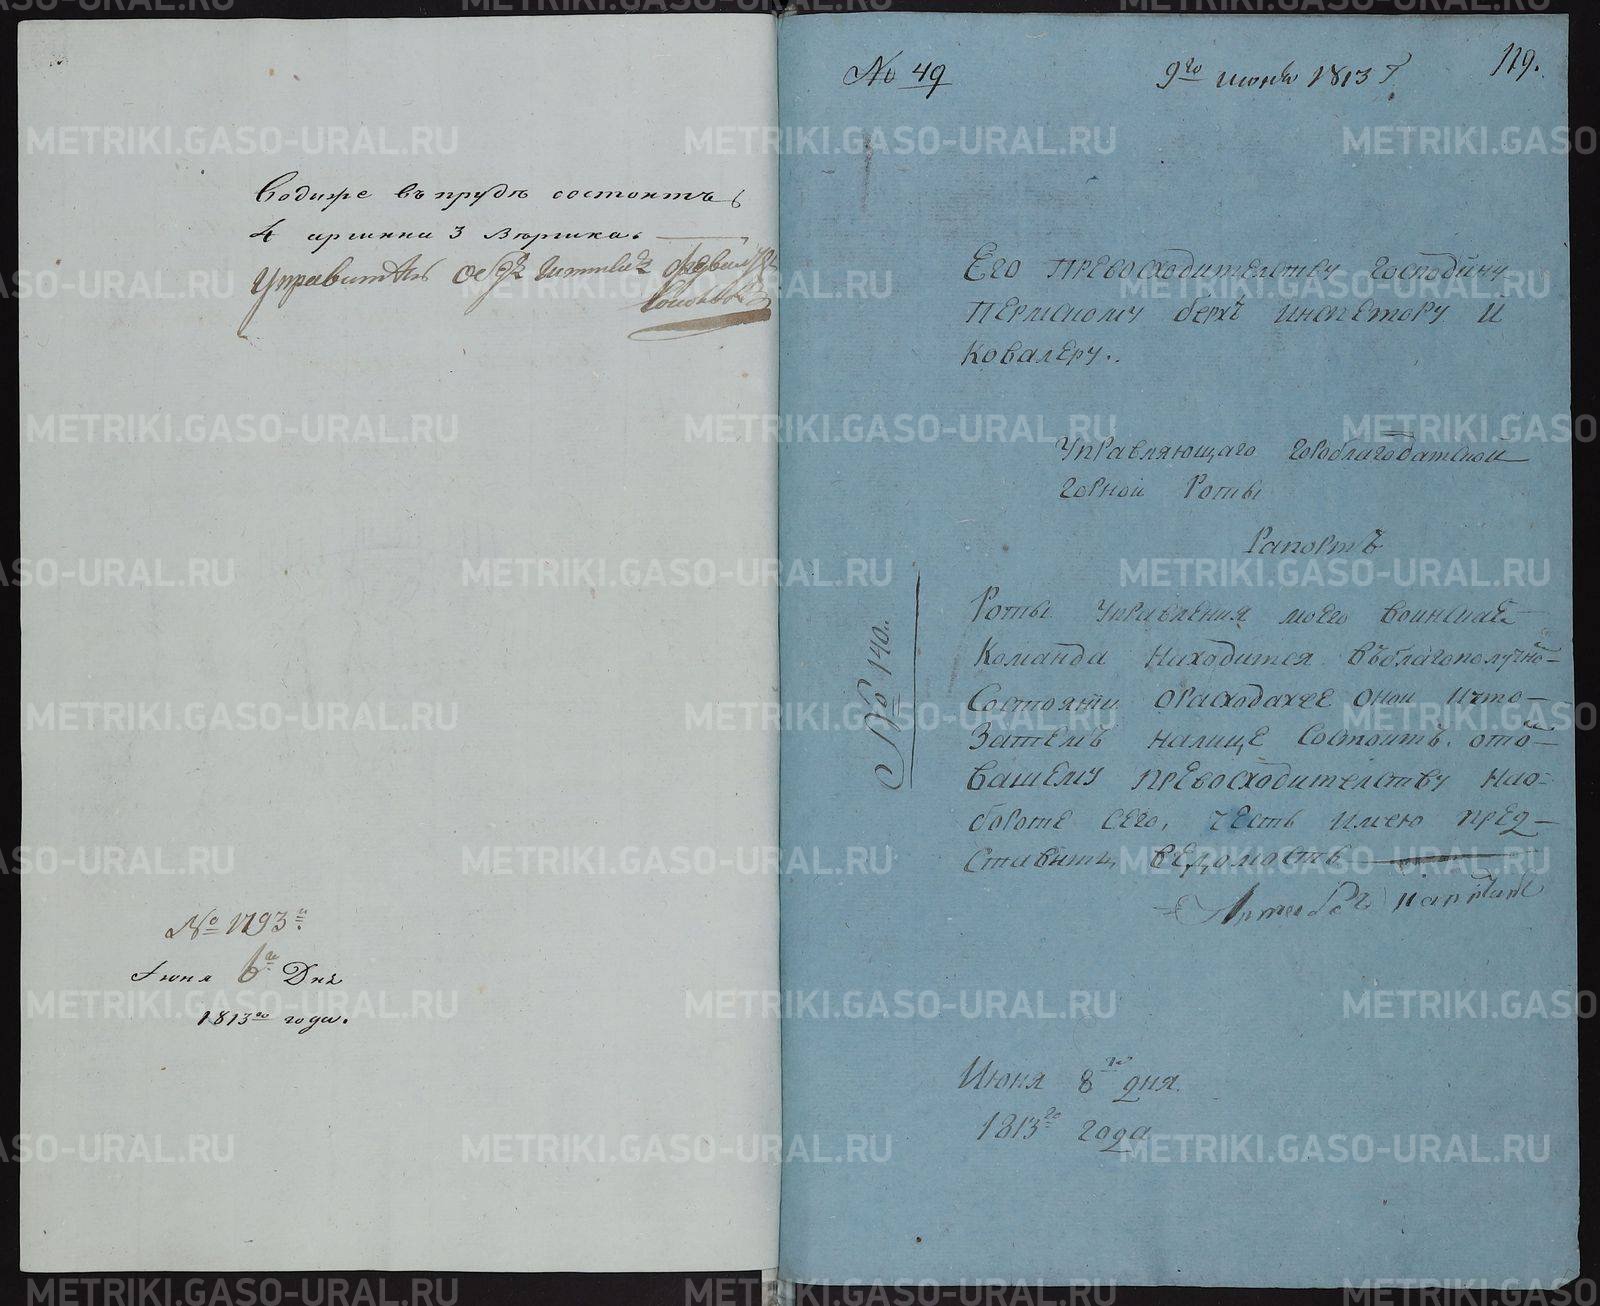 Водыже въ прудѣ состоитъ
4 аршина 3 вершка.
Управитель
№ 1793й
Июня 6го Дня
1813го года.
№ 49
9го июня 1813 г
119.
Его превосходительству господину
пермскому бергъ инспектору и
кавалеру..
Управляющаго гороблагодатской
горной роты
Рапортъ
№ 140..
Роты управления моего воинская
команда находится въ благополучно
состоянии, о расходахже оной и что
затемъ налице состоитъ. отом
вашему превосходительству нао-
бороте сего, честь имею пред-
ставить, ведомость
Июня 8го дня.
1813го года
METRIKI.GASO-URAL.RU